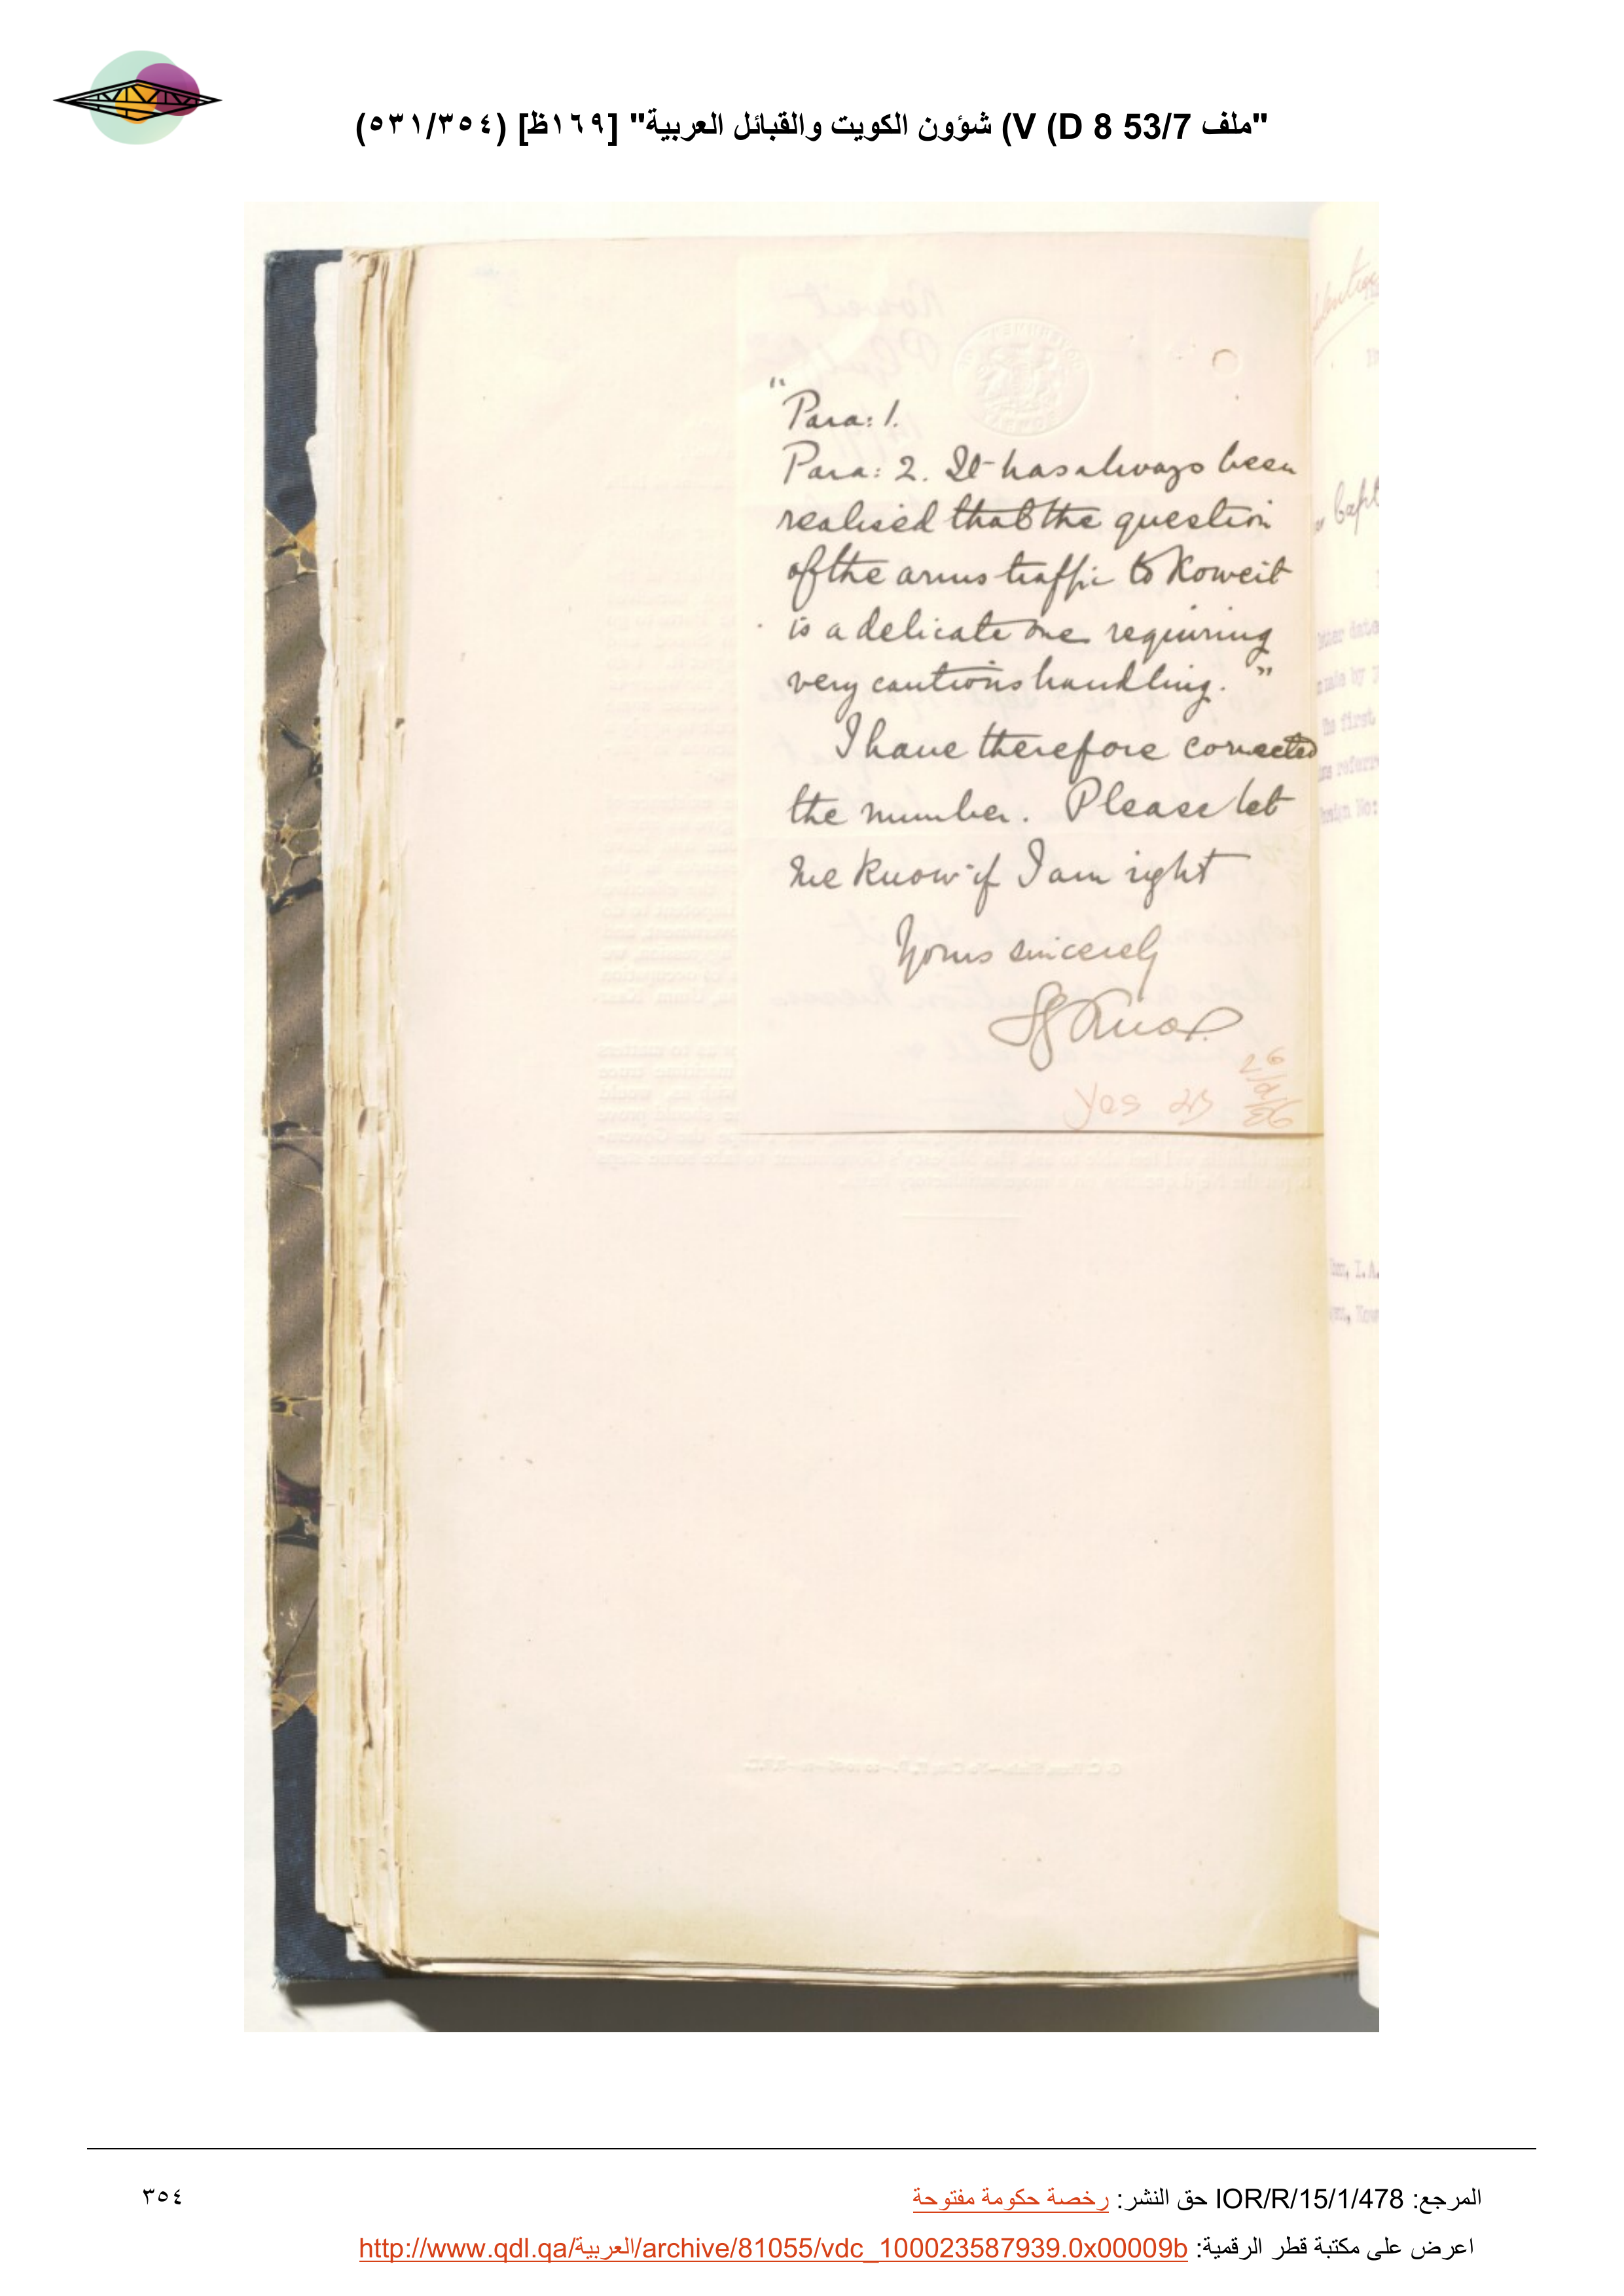 "ملف 53/7 V (D 8) شؤون الكويت والقبائل العربية" [١٦٩ظ] (٥٣١/٣٥٤)
"
Para: 1.
Para: 2. It has always been
realised that the question
of the arms traffic to Koweit
is a delicate one requiring
very cautious handling."
I have therefore corrected
the number. Please let
me know if I am right
Yours sincerely
SG Knox.
Yes
Capt
first
المرجع: IOR/R/15/1/478 حق النشر: رخصة حكومة مفتوحة
٣٥٤
اعرض على مكتبة قطر الرقمية: http://www.qdl.qa/العربية/archive/81055/vdc_100023587939.0x00009b